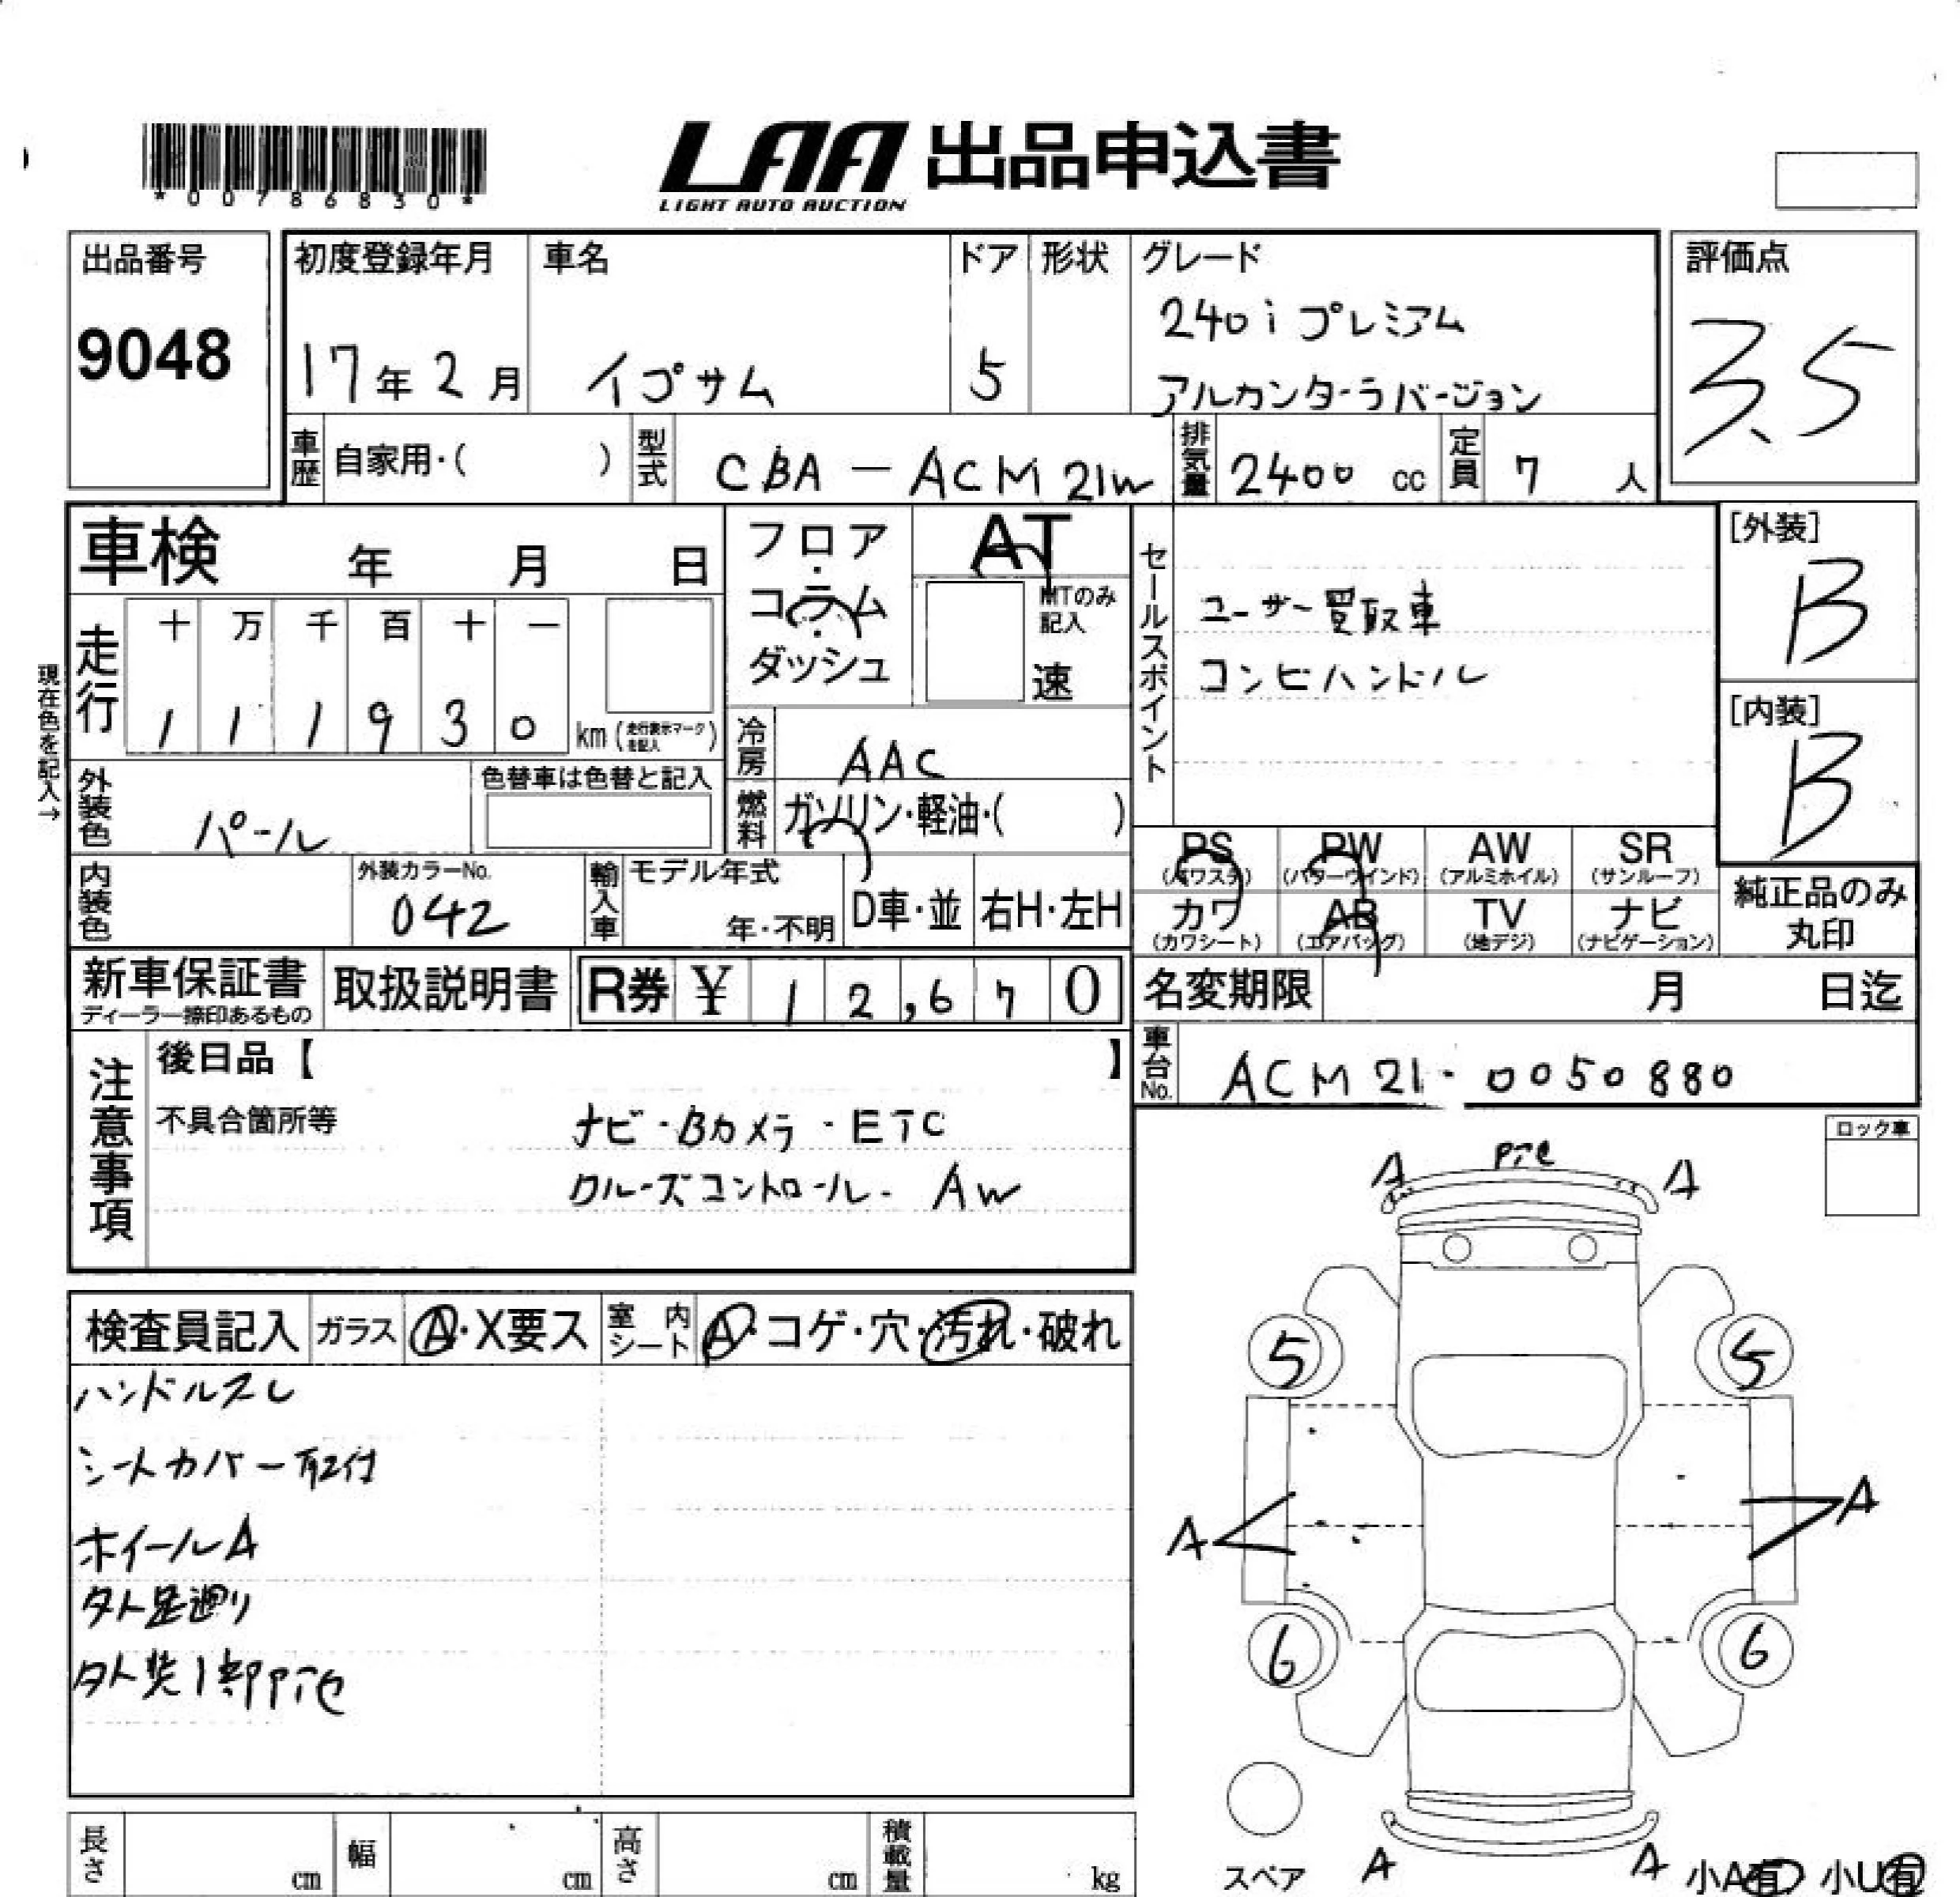 *00786830*
LAA 出品申込書
LIGHT AUTO AUCTION
出品番号
9048
初度登録年月
17年2月
車名
イプサム
ドア
5
形状
グレード
240i プレミアム
アルカンターラバージョン
評価点
3.5
車歴
自家用・( )
型式
CBA-ACM21W
排気量
2400 cc
定員
7 人
車検 年 月 日
走行
十 万 千 百 十 一
1 1 1 9 3 0 km (走行表示マークを記入)
現在色を記入→
外装色
パール
色替車は色替と記入
内装色
外装カラーNo.
042
フロア・コラム・ダッシュ
AT
MTのみ記入
速
冷房
AAC
燃料
ガソリン・軽油・( )
輸入車
モデル年式
年・不明
D車・並
右H・左H
セールスポイント
ユーザー買取車
コンビハンドル
[外装]
B
[内装]
B
PS (パワステ)
PW (パワーウインド)
AW (アルミホイル)
SR (サンルーフ)
カワ (カワシート)
AB (エアバッグ)
TV (地デジ)
ナビ (ナビゲーション)
純正品のみ丸印
新車保証書
ディーラー捺印あるもの
取扱説明書
R券 ¥ 12,670
名変期限 月 日迄
車台No.
ACM21-0050880
注意事項
後日品【 】
不具合箇所等
ナビ・Bカメラ・ETC
クルーズコントロール・AW
ロック車
検査員記入
ガラス
A・X要ス
室内シート
A・コゲ・穴・汚れ・破れ
ハンドルスレ
シートカバー取付
ホイールA
タト足廻り
外装1部P1色
A
P1色
A
5
5
A
A
6
6
スペア
A
A
小A有 小U有
長さ cm
幅 cm
高さ cm
積載量 kg